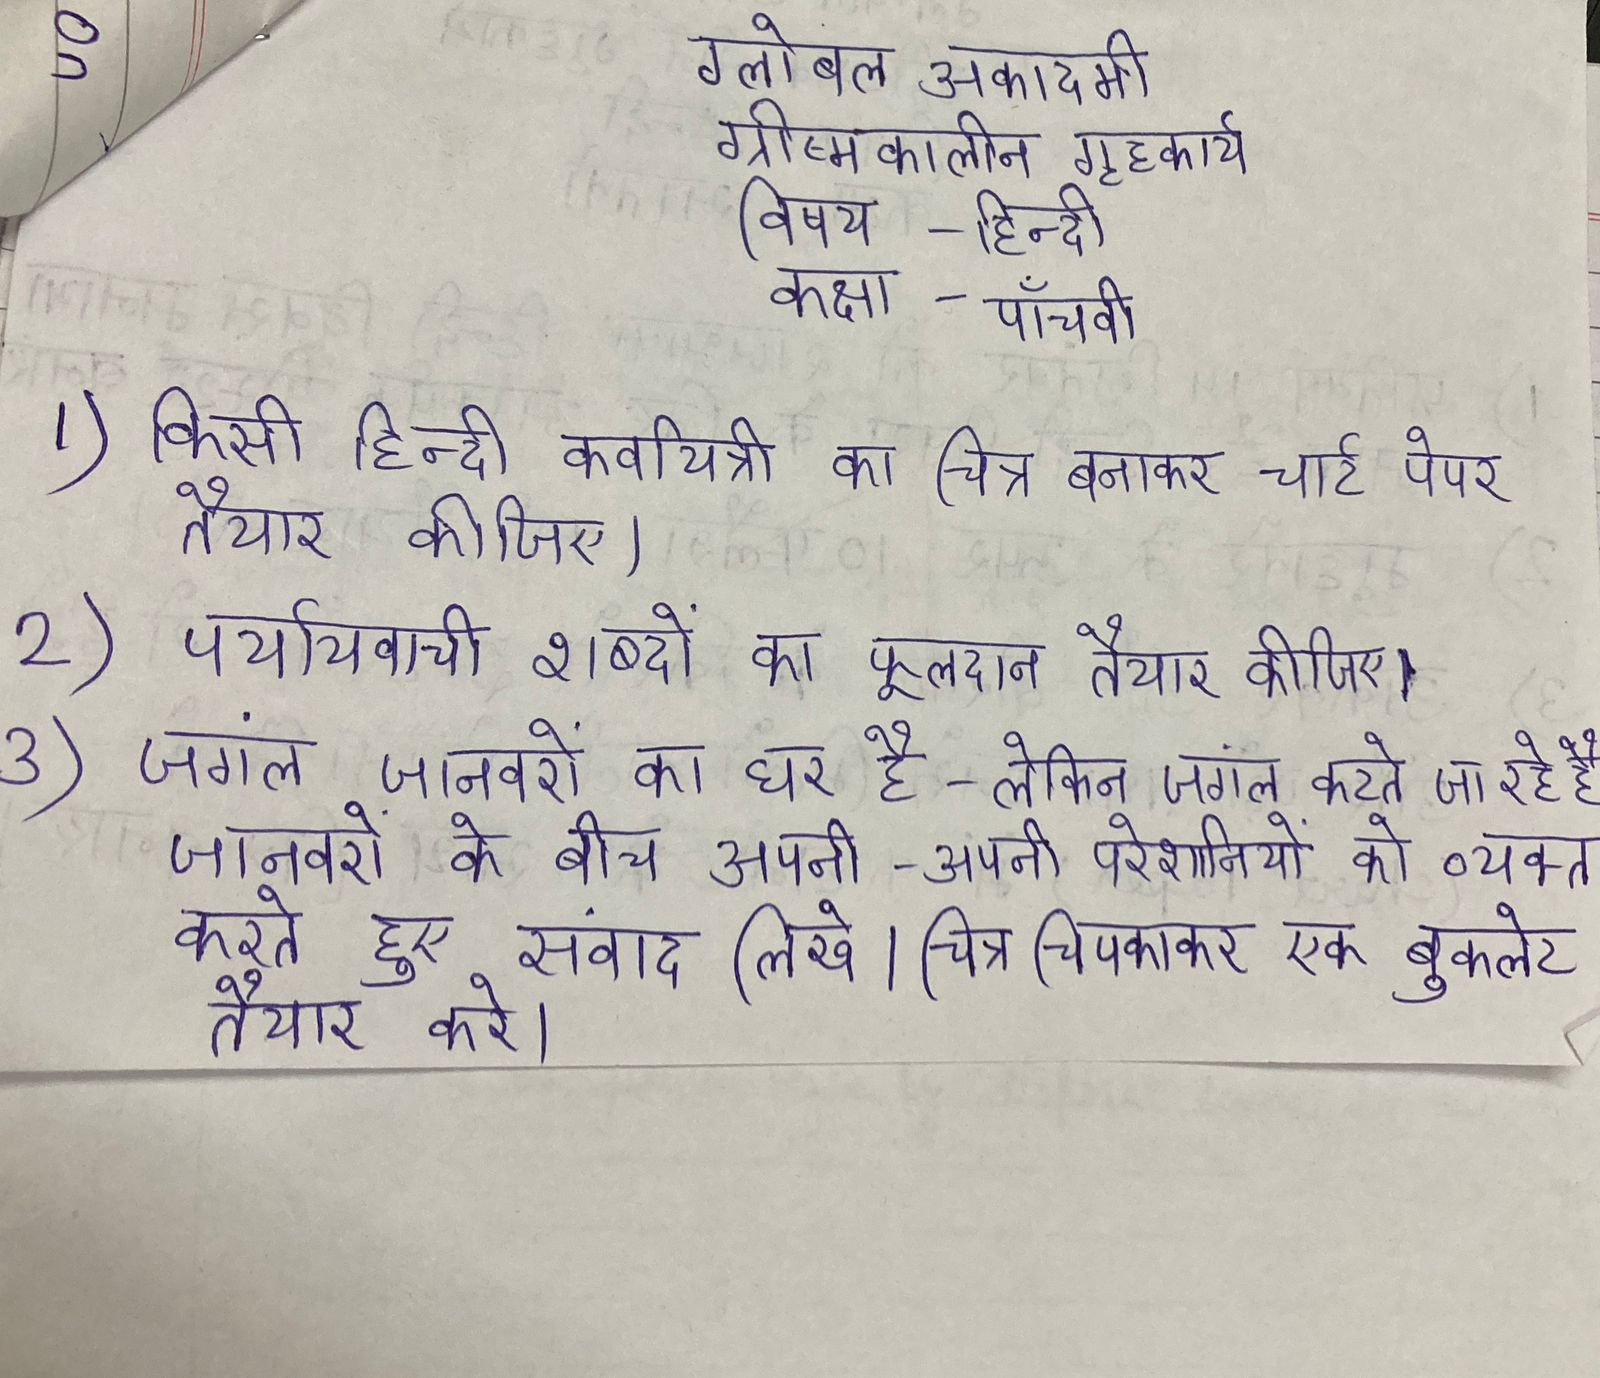 ग्लोबल अकादमी
ग्रीष्मकालीन गृहकार्य
विषय - हिन्दी
कक्षा - पाँचवी
1) किसी हिन्दी कवयित्री का चित्र बनाकर चार्ट पेपर
तैयार कीजिए।
2) पर्यायवाची शब्दों का फूलदान तैयार कीजिए।
3) जगंल जानवरों का घर है - लेकिन जगंल कटते जा रहे है
जानवरों के बीच अपनी - अपनी परेशानियों को व्यक्त
करते हुए संवाद लिखे। चित्र चिपकाकर एक बुकलेट
तैयार करे।